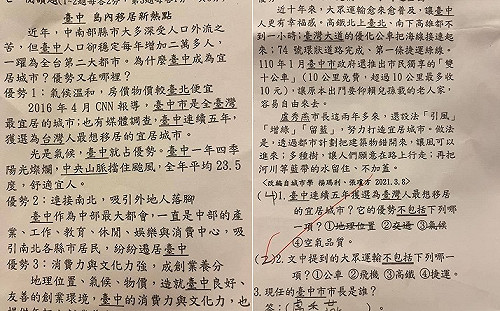 臺中 島內移居新熱點
近年，中南部縣市大多深受人口外流之
苦，但臺中人口卻穩定每年增加二萬多人，
一躍為全台第二大都市。為什麼臺中成為宜
居城市？優勢又在哪裡？
優勢1：氣候溫和，房價物價較臺北便宜
2016年4月CNN報導，臺中市是全臺灣
最宜居的城市；也有媒體調查，臺中連續五年，
獲選為台灣人最想移居的宜居城市。
光是氣候，臺中就占優勢。臺中一年四季
陽光燦爛，中央山脈擋住颱風，全年平均23.5
度，舒適宜人。
優勢2：連接南北，吸引外地人落腳
臺中作為中部最大都會，一直是中部的產
業、工作、教育、休閒、娛樂與消費中心，吸
引南北各縣市居民，紛紛遷居臺中
優勢3：消費力與文化力強，成創業養分
地理位置、氣候、物價，造就臺中良好、
友善的創業環境，臺中的消費力與文化力，也
近十年來，大眾運輸愈來愈普及，讓臺中
人更有幸福感。高鐵北上臺北、南下高雄都不
到一小時；臺灣大道的優化公車把海線接連起
來；74號環狀道路完成，第一條捷運綠線。
110年1月臺中市政府還推出市民獨享的「雙
十公車」(10公里免費，超過10公里最多收
10元)，讓原本出門要仰賴兒孫載的老人家，
容易自由來去。
盧秀燕市長這兩年多來，還設法「引風」
「增綠」「留藍」，努力打造宜居城市。做法
是，透過都市計劃把建築物錯開來，讓風可以
進來；多種樹，讓人們願意在路上行走；再把
河川等藍帶的水留住、不加蓋。
<改編自城市學 楊瑪利、張瓊方 2021.3.8>
(4)1.臺中連續五年獲選為臺灣人最想移居
的宜居城市？它的優勢不包括下列哪
一項？①地理位置 ②交通 ③氣候
④空氣品質。
(2)2.文中提到的大眾運輸不包括下列哪一
項？①公車 ②飛機 ③高鐵 ④捷運。
3.現任的臺中市市長是誰？
答：(盧秀燕)。